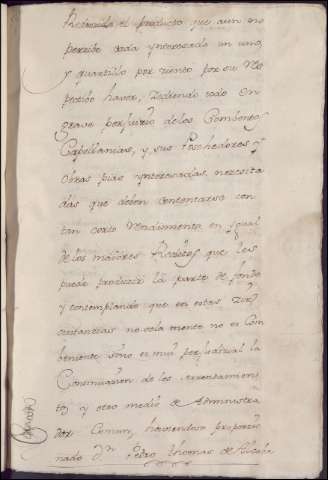 el producto que aun no
percibe cada ynteresado un uno,
y quartillo por ciento por su
haver, cediendo todo en
grave perjuicio de los
Capellanias, y sus Poshedores, y
obras pias ynteresadas, necesita
das que deben contentarse con
tan corto Rendimiento en igual
de los maiores Reditos que les
puede producir la parte de fondo
y contemplando que en estas cir
cunstancias no solamente no es com
beniente sino es mui perjudicial la
Continuacion de los arrendamien
tos y otro medio de Administra
dor Comun, haviendose proporcio
nado Dn. Pedro Thomas de